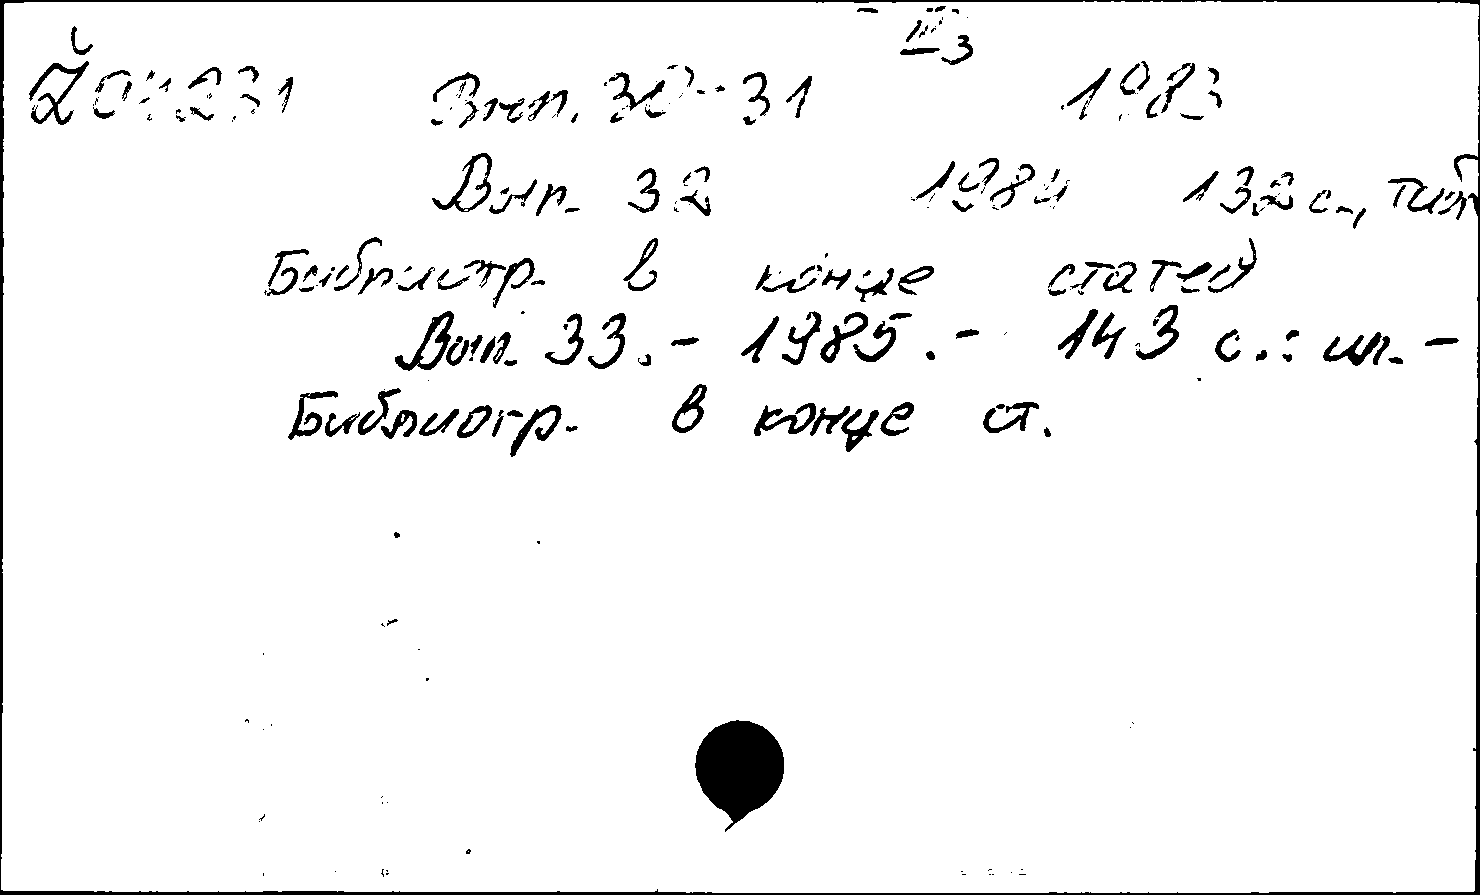 III 3
Ž04231 Вып. 30-31 1983
Вып. 32 1984 132 с.,
Библиогр. в конце статей
Вып. 33.- 1985.- 143 с.: ил.-
Библиогр. в конце ст.